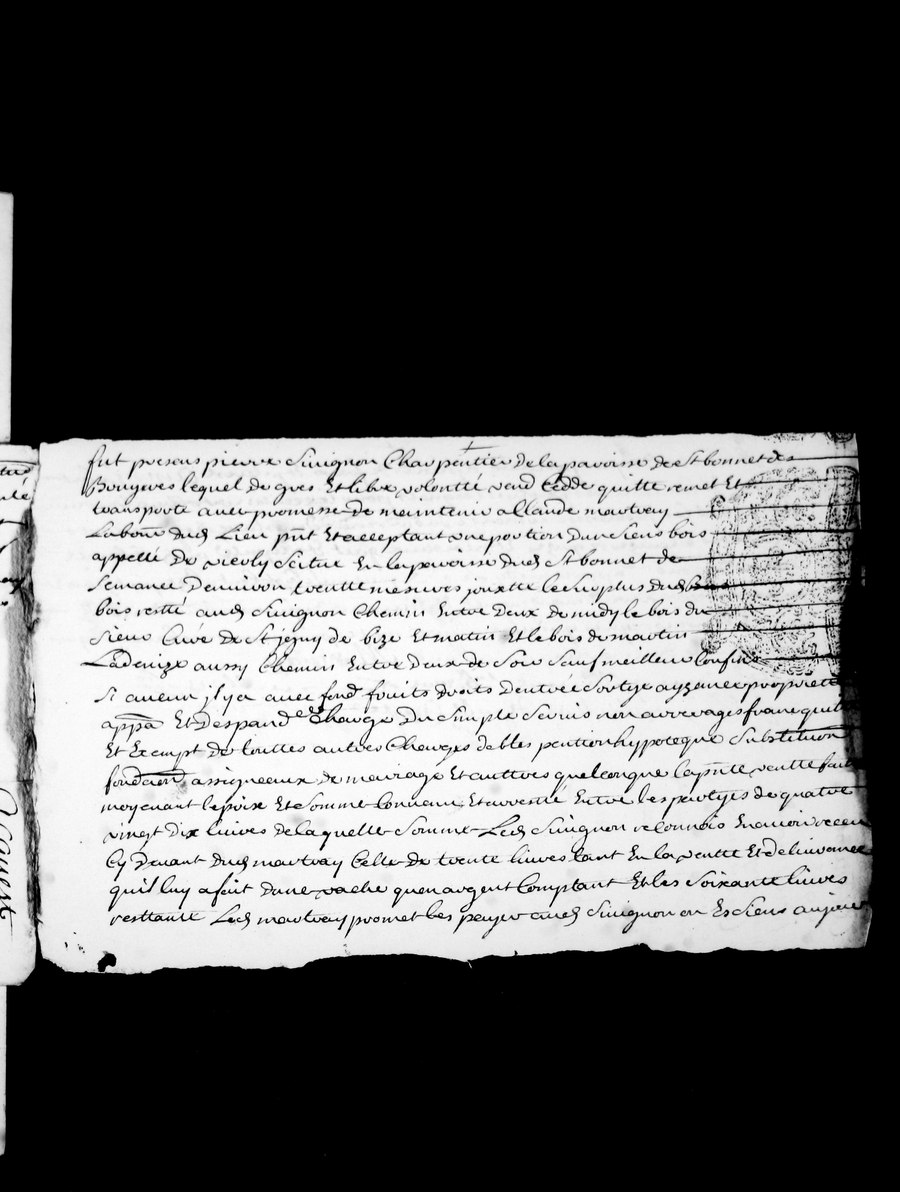 fut presens pierre Suuignon Charpentier de la paroisse de St bonnet des
Bruyeres lequel de gres Et libre volontté vend Cedde quitte remet Et
transporte avec promesse de maintenir a Claude mautray
Labour dud Lieu pnt Et acceptant une portion d'un Siens bois
appellé de Scitué En la paroisse dud St bonnet de
Semance denuiron trentte mesures jouxtte le Surplus dud
bois restté aud Suuignon Chemin Entre Deux de midy le bois du
Sieur Curé de St de bize Et matin Et le bois de martin
Ladenize aussy Chemin Entre Deux de Soir Sauf meilleur Confins
Si aucun jl y a avec fond fruits droits D'entrée Sortye ayzance propriette
appa Et Despand Charge Du Simple Seruis non arrerages franc quitte
Et Exempt de touttes autres Charges debtes pention hypoteque Substitution
fondation assigneaux de mariage Et auttres quelconque la pnte ventte faite
moyenant le prix Et Somme Conuenu Et arresté Entre les partyes de quatre
vingt dix liures de laquelle Somme Led Suuignon reConnois En auoir receu
Cy Deuant dud mautray Celle de trente liures tant En la ventte Et deliurance
qu'il luy a fait d'une vache qu'en argent Comptant Et les Soixante liures
resttante Led mautray promet les payer aud Suuignon ou Es Siens